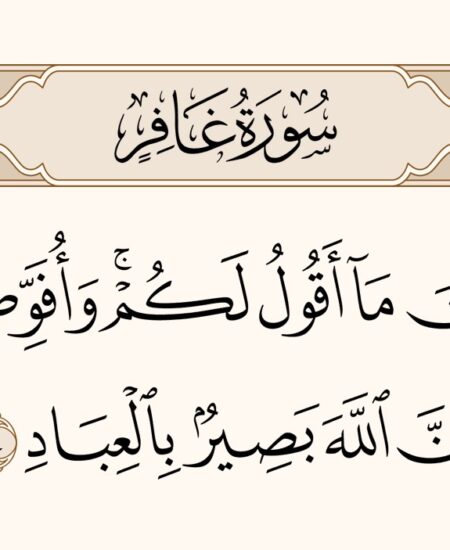 سُورَةُ غَافِرٍ
مَآ أَقُولُ لَكُمْ ۚ وَأُفَوِّضُ
ٱللَّهَ بَصِيرٌۢ بِٱلْعِبَادِ